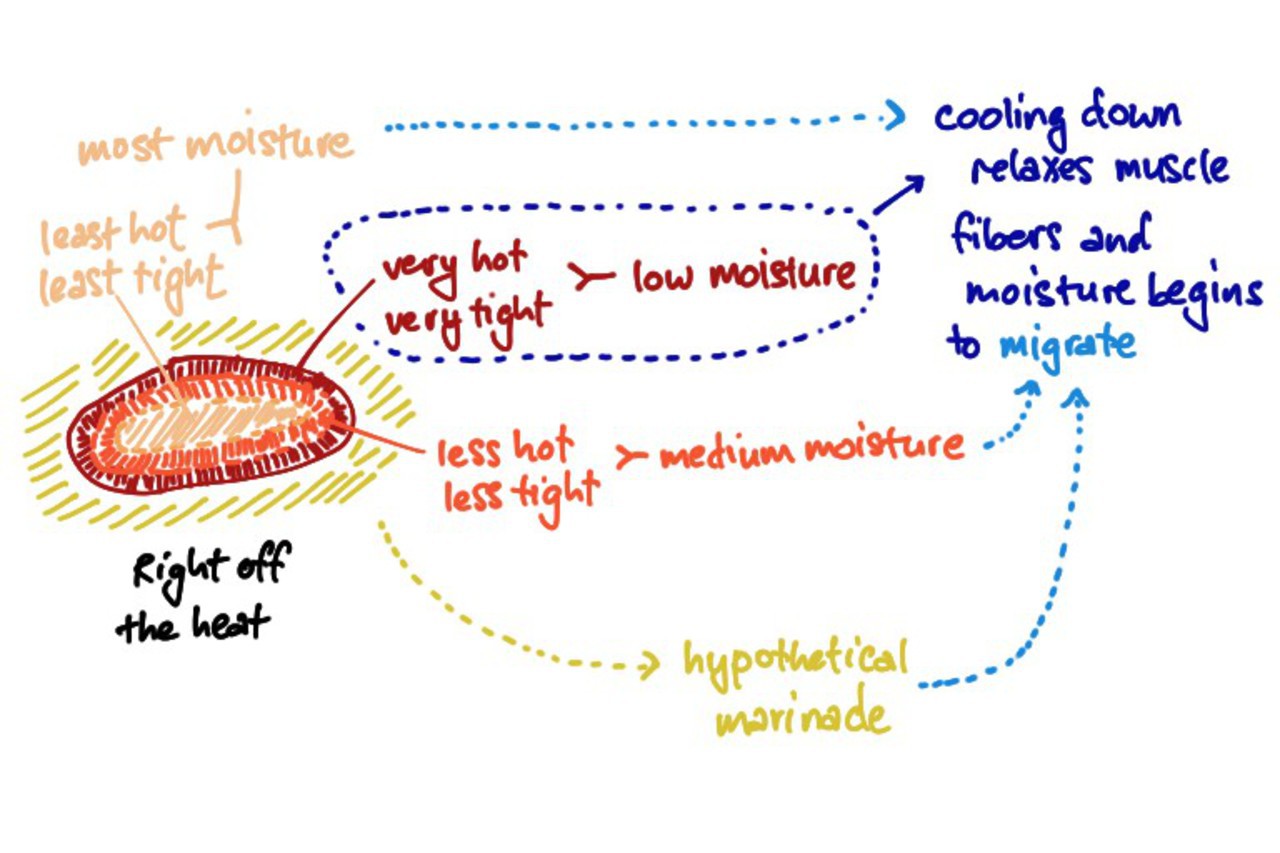 most moisture
least hot
least tight
very hot
very tight
low moisture
cooling down
relaxes muscle
fibers and
moisture begins
to migrate
less hot
less tight
medium moisture
Right off
the heat
hypothetical
marinade